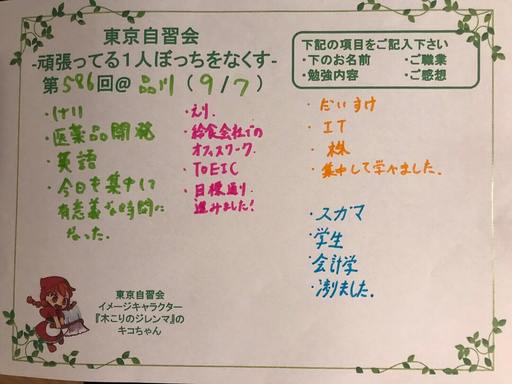 東京自習会
-頑張ってる1人ぼっちをなくす-
第586回@品川(9/7)
下記の項目をご記入下さい
・下のお名前 ・ご職業
・勉強内容 ・ご感想
・けい
・医薬品開発
・英語
・今日も集中して
有意義な時間に
なった.
・えり.
・給食会社での
オフィスワーク.
・TOEIC
・目標通り
進みました!
・だいすけ
・IT
・株
・集中して学べました.
・スガマ
・学生
・会計学
・捗りました.
東京自習会
イメージキャラクター
『木こりのジレンマ』の
キコちゃん